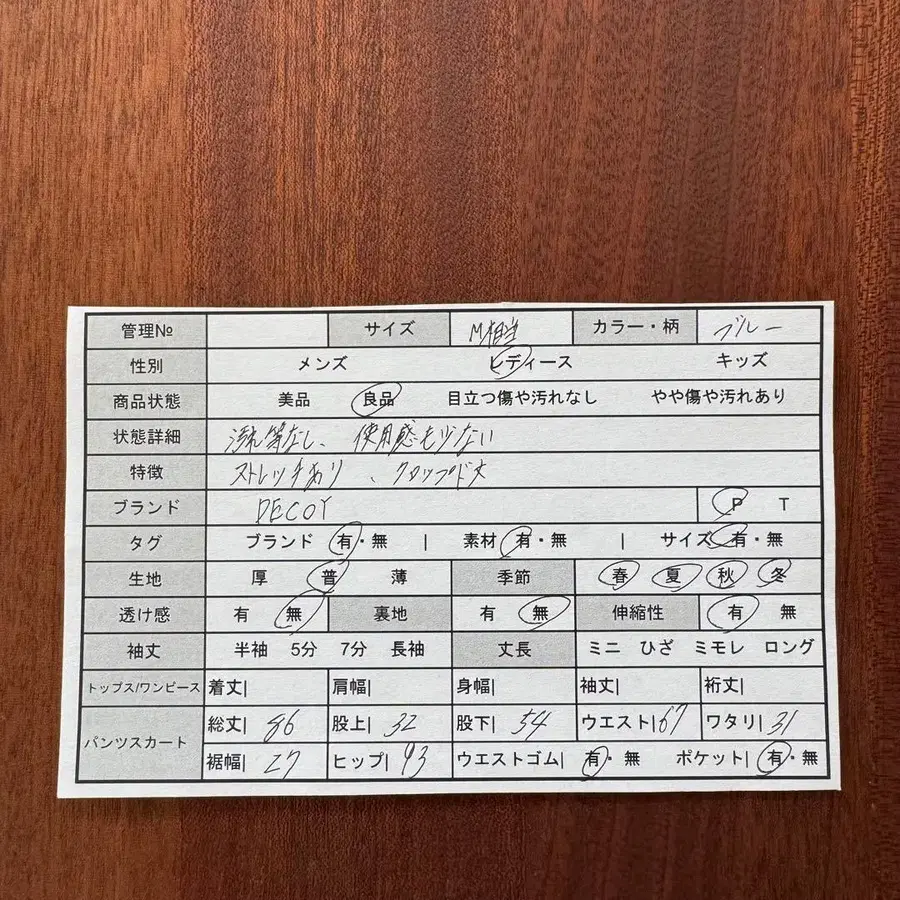 管理№ サイズ M相当 カラー・柄 ブルー
性別 メンズ レディース キッズ
商品状態 美品 良品 目立つ傷や汚れなし やや傷や汚れあり
状態詳細 汚れ等なし、使用感も少ない
特徴 ストレッチあり、クロップド丈
ブランド DECOY P T
タグ ブランド 有・無 | 素材 有・無 | サイズ 有・無
生地 厚 普 薄 季節 春 夏 秋 冬
透け感 有 無 裏地 有 無 伸縮性 有 無
袖丈 半袖 5分 7分 長袖 丈長 ミニ ひざ ミモレ ロング
トップス/ワンピース 着丈| 肩幅| 身幅| 袖丈| 裄丈|
パンツスカート 総丈| 86 股上| 32 股下| 54 ウエスト| 67 ワタリ| 31
裾幅| 27 ヒップ| 93 ウエストゴム| 有・無 ポケット| 有・無